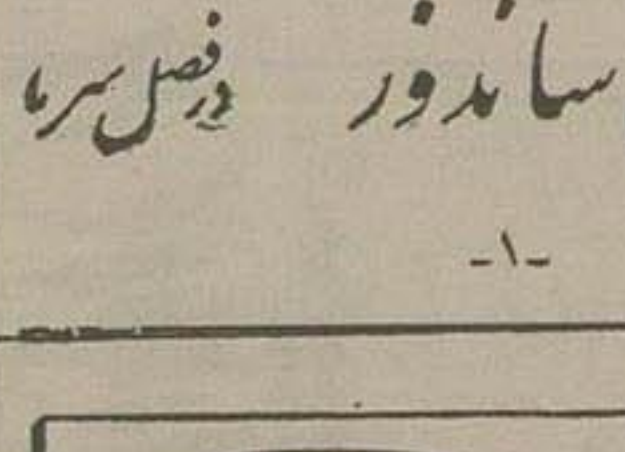 ساندوز در فصل سرما
-۱-